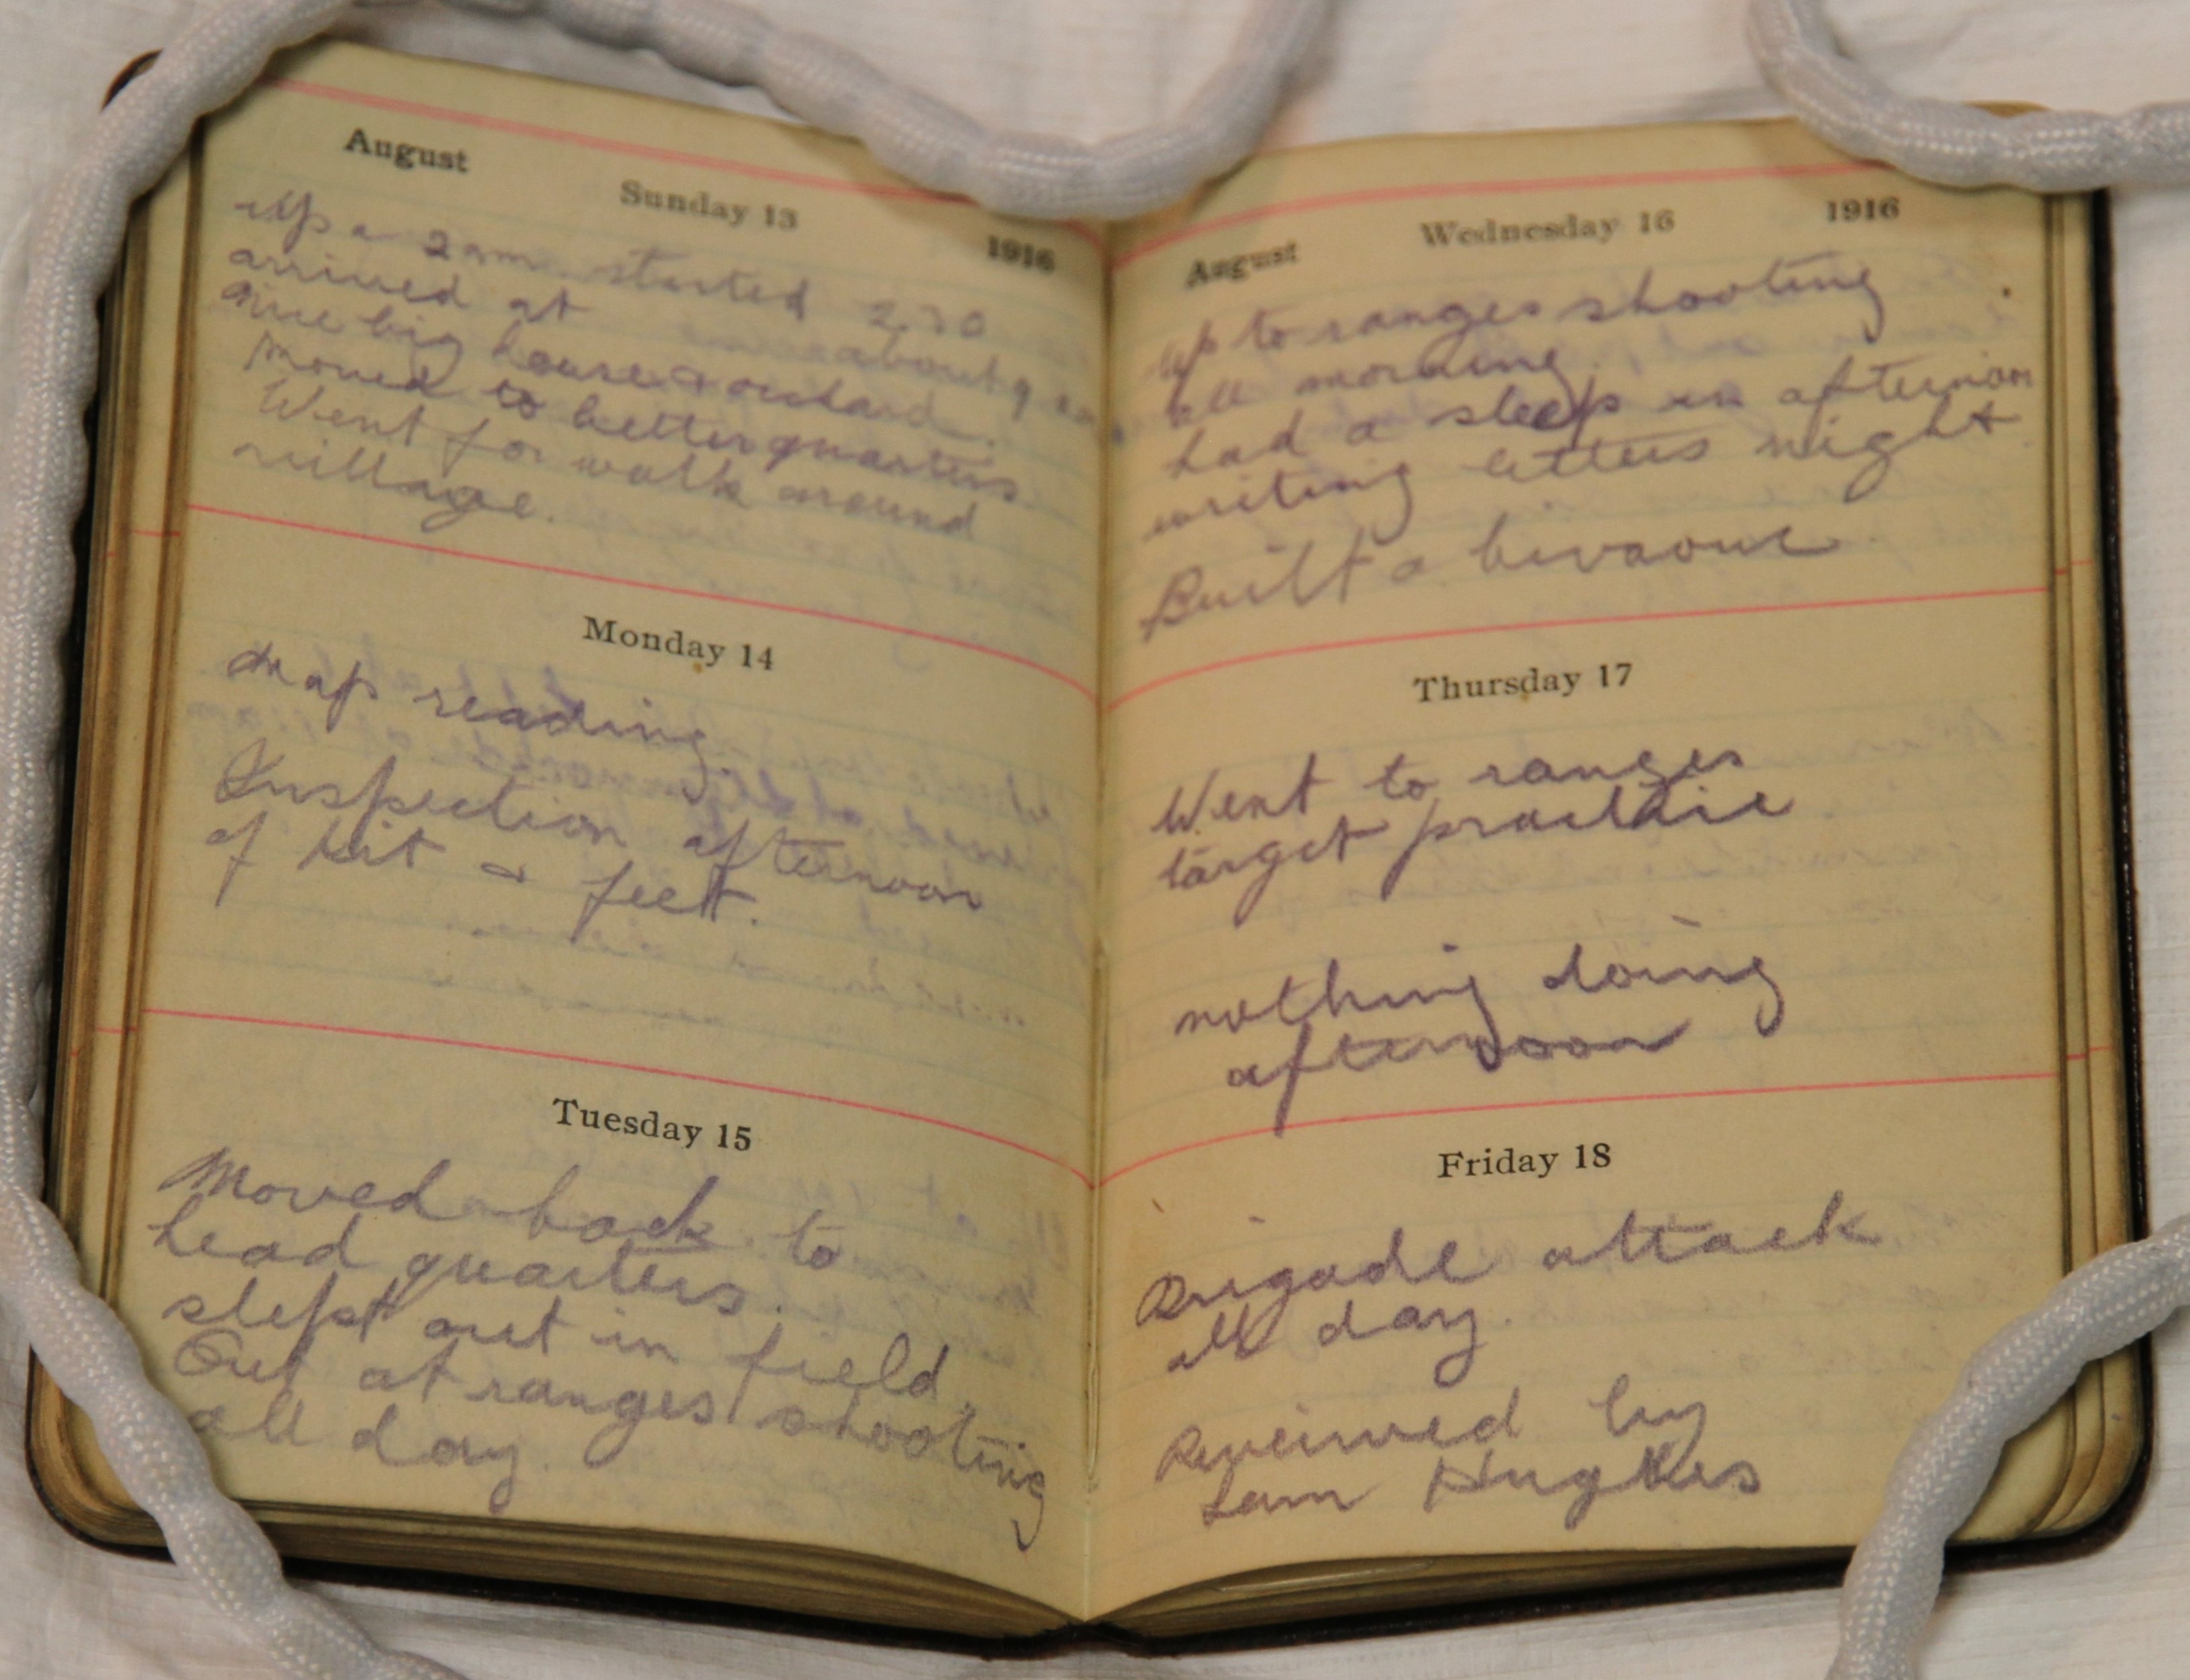 August
Sunday 13
1916
Up a 2 am started 2.30
arrived at about 9
nice big house & orchard.
Moved to better quarters.
Went for walk around
village.
Monday 14
Map reading
Inspection afternoon
of kit & feet.
Tuesday 15
Moved back to
head quarters.
slept out in field.
Out at ranges shooting
all day.
August
Wednesday 16
1916
Up to ranges shooting
all morning.
had a sleep in afternoon
writing letters night.
Built a bivaouc
Thursday 17
Went to ranges
target practice
nothing doing
afternoon
Friday 18
Brigade attack
all day.
Reveiwed by
Sam Hughes